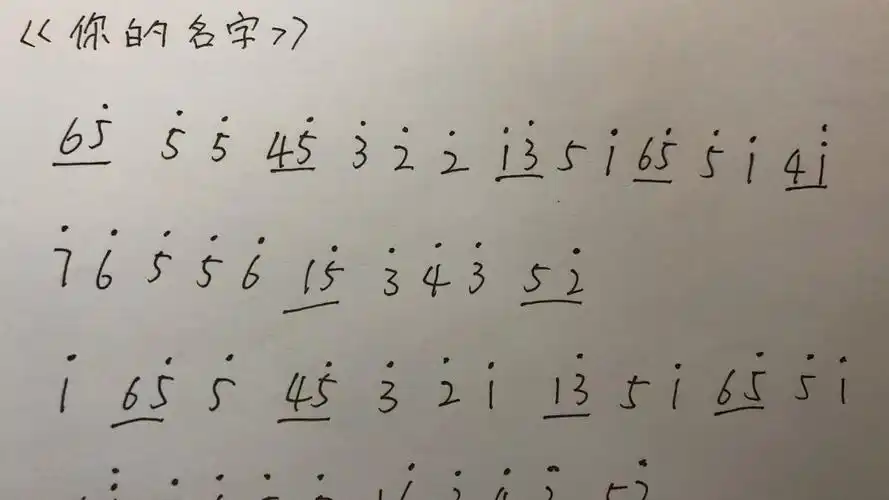 《你的名字》
65̇ 5̇ 5̇ 45̇ 3̇ 2̇ 2̇ 1̇3̇ 5 1̇ 65̇ 5̇ 1̇ 41̈
7̇ 6̇ 5̇ 5̇ 6̇ 15̇ 3̇ 4̇ 3̇ 5 2̇
1̇ 65̇ 5̇ 45̇ 3̇ 2̇ 1̇ 1̇3̇ 5 1̇ 65̇ 5̇ 1̇